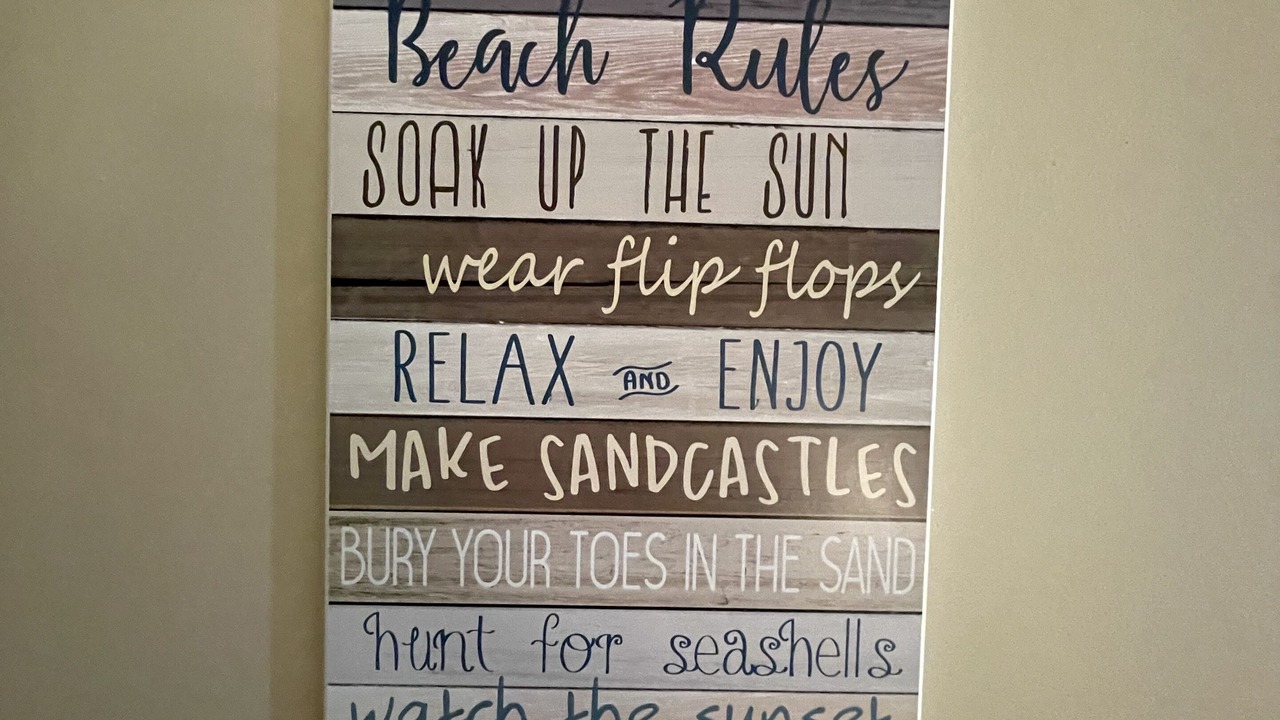 Beach Rules
SOAK UP THE SUN
wear flip flops
RELAX AND ENJOY
MAKE SANDCASTLES
BURY YOUR TOES IN THE SAND
hunt for seashells
watch the sunset